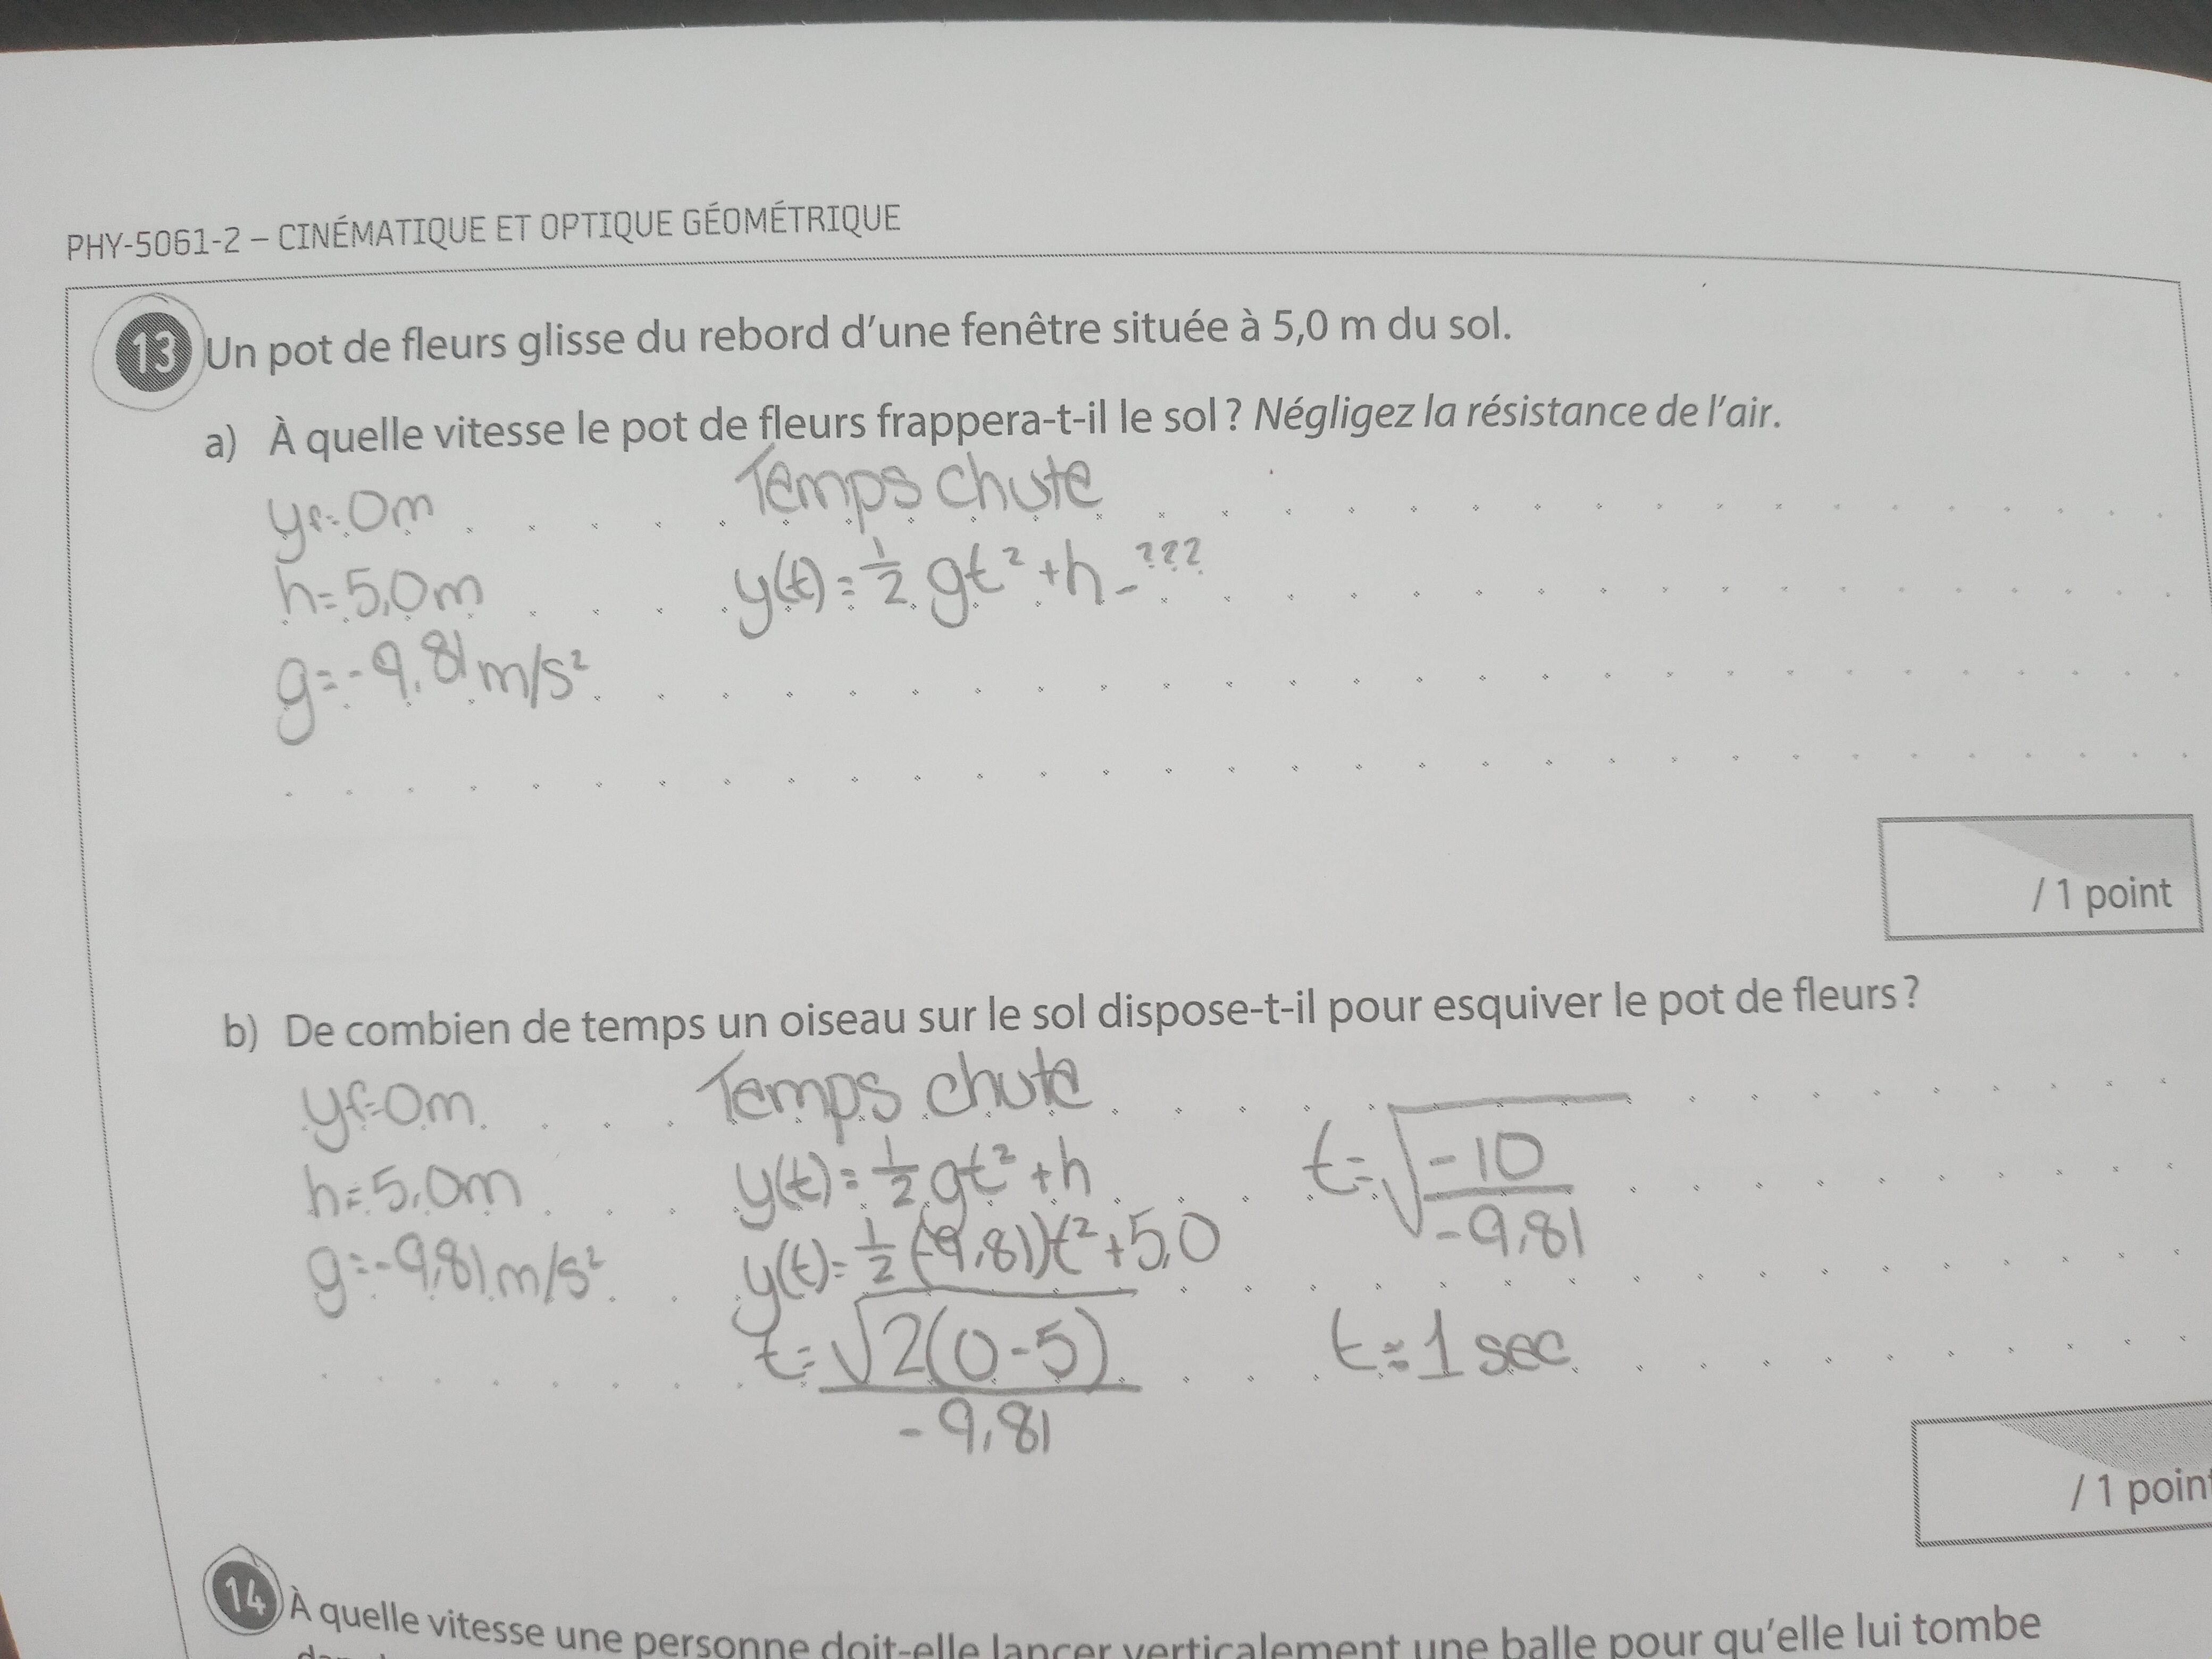 PHY-5061-2 – CINÉMATIQUE ET OPTIQUE GÉOMÉTRIQUE
13 Un pot de fleurs glisse du rebord d'une fenêtre située à 5,0 m du sol.
a) À quelle vitesse le pot de fleurs frappera-t-il le sol ? Négligez la résistance de l'air.
yf=0m Temps chute
h=5,0m y(t)=1/2 gt²+h-???
g=-9,81m/s²
/ 1 point
b) De combien de temps un oiseau sur le sol dispose-t-il pour esquiver le pot de fleurs ?
yf=0m Temps chute
h=5,0m y(t)=1/2 gt²+h t=√(-10/-9,81)
g=-9,81m/s² y(t)=1/2(-9,81)t²+5,0
t=√2(0-5)/-9,81 t≈1 sec
/ 1 point
14 À quelle vitesse une personne doit-elle lancer verticalement une balle pour qu'elle lui tombe